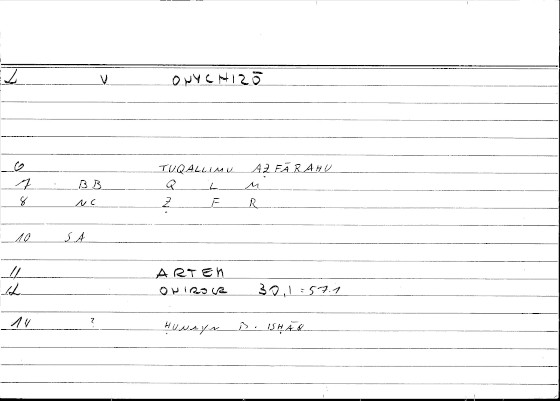 2 V ONYCHIZŌ
6 TUQALLIMU AẒFĀRAHU
7 BB Q L M
8 NC Ẓ F R
10 SA
11 ARTEM
12 ONIROCR 30,1:571
14 ? ḤUNAYN B. ISḤĀQ